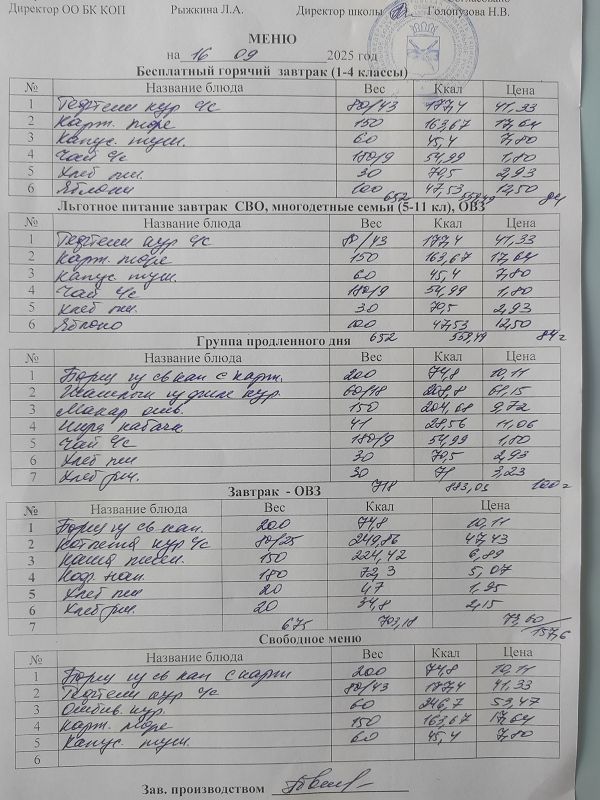 Согласовано
Директор ОО БК КОП Рыжкина Л.А. Директор школы Голопузова Н.В.
МЕНЮ
на 16 09 2025 год
Бесплатный горячий завтрак (1-4 классы)
№ Название блюда Вес Ккал Цена
1 Тефтели кур ч/с 80/43 177,4 41,33
2 Карт. пюре 150 163,67 17,64
3 Капус. туш. 60 45,4 7,80
4 Чай ч/с 180/9 54,99 1,80
5 Хлеб пш. 30 70,5 2,93
6 Яблоки 100 47,53 12,50
652 559,49 84
Льготное питание завтрак СВО, многодетные семьи (5-11 кл), ОВЗ
№ Название блюда Вес Ккал Цена
1 Тефтели кур ч/с 80/43 177,4 41,33
2 Карт. пюре 150 163,67 17,64
3 Капус. туш. 60 45,4 7,80
4 Чай ч/с 180/9 54,99 1,80
5 Хлеб пш. 30 70,5 2,93
6 Яблоко 100 47,53 12,50
652 559,49 84
Группа продленного дня
№ Название блюда Вес Ккал Цена
1 Борщ из св кап с карт. 200 74,8 10,11
2 из филе кур. 60/18 208,8 61,15
3 Макар отв. 150 204,68 9,72
4 Икра кабачк. 41 28,56 11,06
5 Чай ч/с 180/9 54,99 1,80
6 Хлеб пш 30 70,5 2,93
7 Хлеб рж. 30 71 3,23
718 883,05 100
Завтрак - ОВЗ
№ Название блюда Вес Ккал Цена
1 Борщ из св кап. 200 74,8 10,11
2 Котлета кур ч/с 80/25 249,86 47,43
3 Каша 150 224,42 6,89
4 нап. 180 72,3 5,07
5 Хлеб пш 20 47 1,95
6 Хлеб рж. 20 34,8 2,15
7 675 703,18 73,60
157,6
Свободное меню
№ Название блюда Вес Ккал Цена
1 Борщ из св кап с карт 200 74,8 10,11
2 Тефтели кур ч/с 80/43 177,4 41,33
3 Отбив. кур. 60 246,7 53,47
4 Карт. пюре 150 163,67 17,64
5 Капус. туш. 60 45,4 7,80
6
Зав. производством